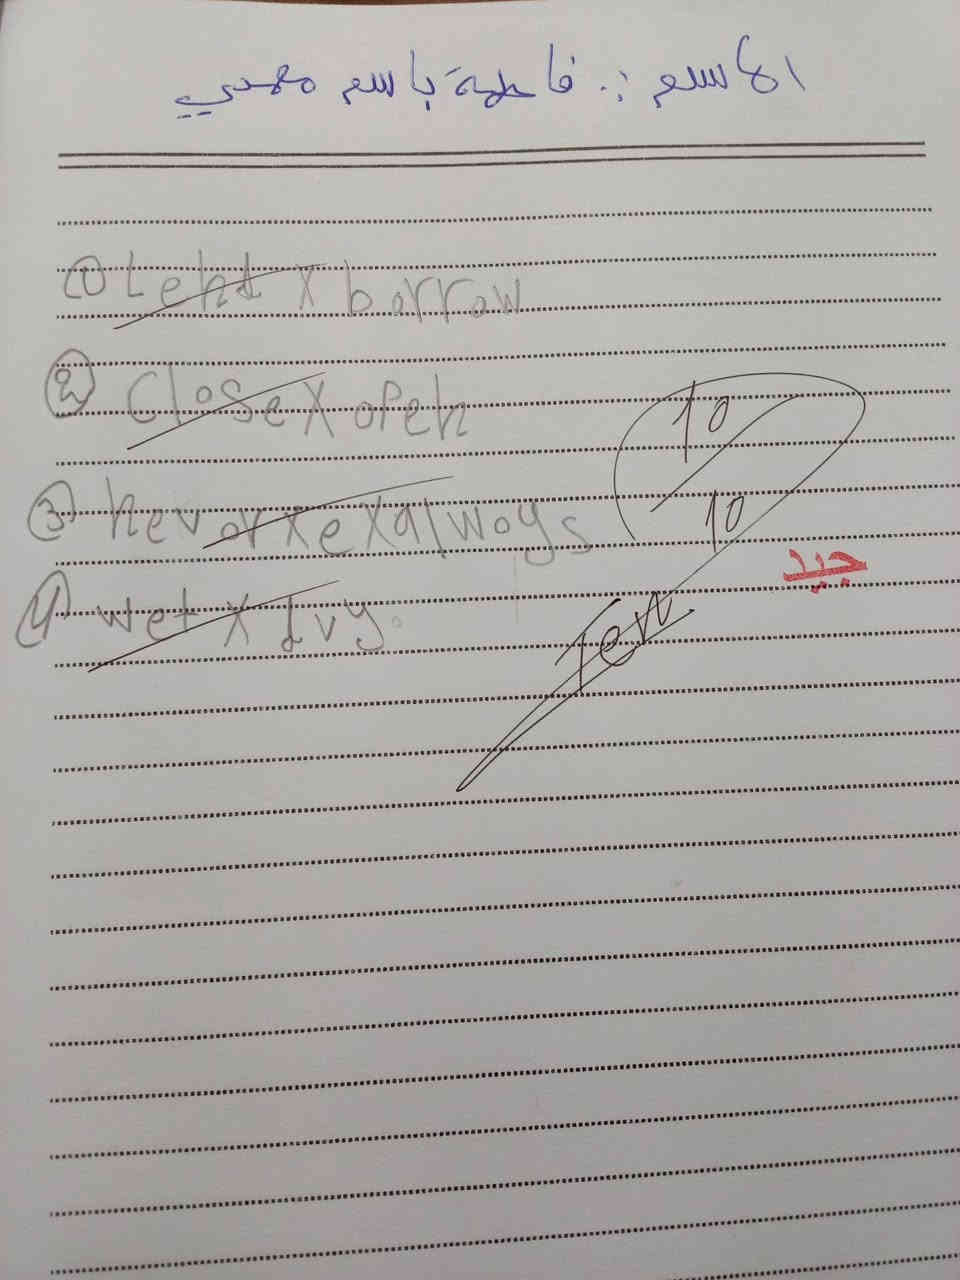 الاسم :. فاطمة باسم مهدي
① Lent X borrow
② Close X open
③ never X always
10
10
جيد
④ wet X dry.
Ten